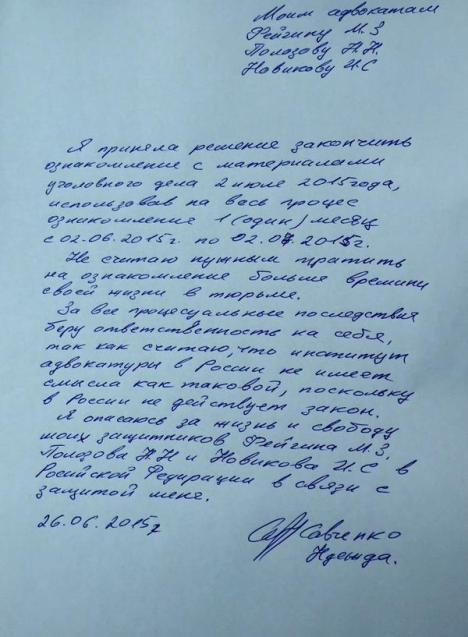 Моим адвокатам
Фейгину М.З
Полозову Н.Н.
Новикову И.С
Я приняла решение закончить
ознакомление с материалами
уголовного дела 2 июле 2015года,
использовав на весь процес
озникомление 1 (один) месяц
с 02.06.2015г. по 02.07.2015г.
Не считаю нужным тратить
на ознакомление больше времини
своей жизни в тюрьме.
За все процесуальные последствия
беру ответственность на себя,
так как считаю, что институт
адвокатуры в России не имеет
смысла как таковой, поскольку
в России не действует закон.
Я опасаюсь за жизнь и свободу
моих защитников Фейгина М.З,
Полозова Н.Н и Новикова И.С в
Росийской Федирации в связи с
защитой меня.
26.06.2015г
Савченко
Надежда.